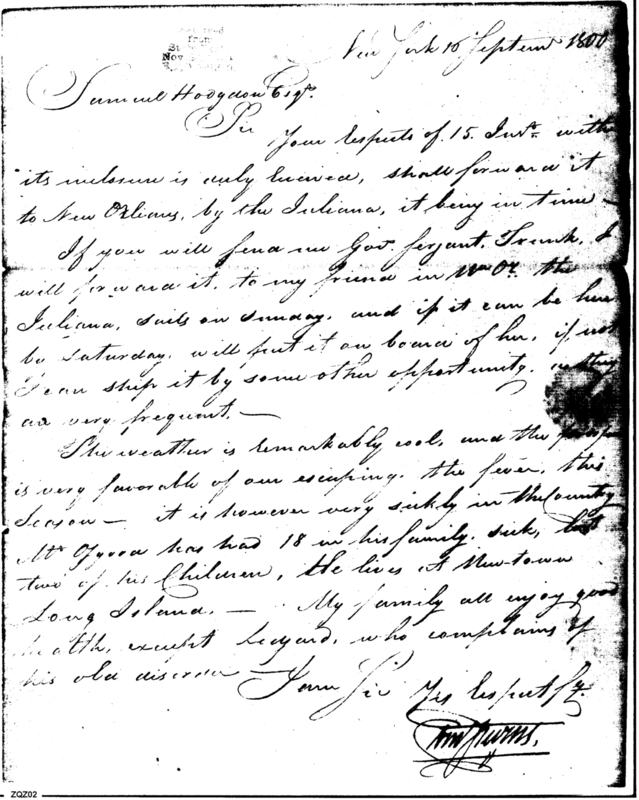 New York 16 Septemr 1800
Samuel Hodgdon Esqr.
Sir
Your respects of 15. Inst. with
its inclosure is duly received, shall forward it
to New Orlians, by the Juliana, it being in time —
If you will send me Govr. Serjant. Trunk, I
will forward it. to my friend in the
Juliana, sails on Sunday, and if it can be here
by Saturday. will put it on board of her, if not
I can ship it by some other opportunity, as they
are very frequent. —
The weather is remarkably cool, and the
is very favorable of our escaping. the fever, this
Season — it is however very sickly in the Country
Mr. Osgood has had 18 in his family. sick, lost
two of his Children, He lives at New-town
Long Island. — My family all enjoy good
health, except Ledyard, who complains of
his old disorder — I am Sir Yrs Respectfy.
ZQZ02